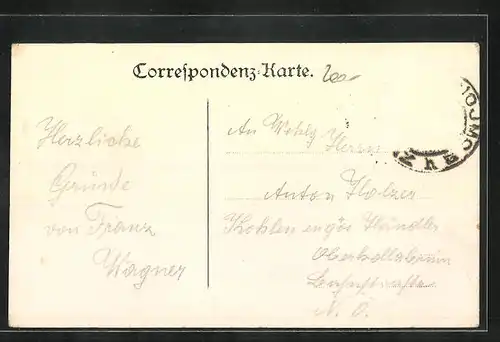 Correspondenz-Karte.
Herzliche
Grüße
von Franz
Wagner
An Herrn
Anton Holzer
Kohlen en gros Händler
Oberhollabrunn
N. Ö.